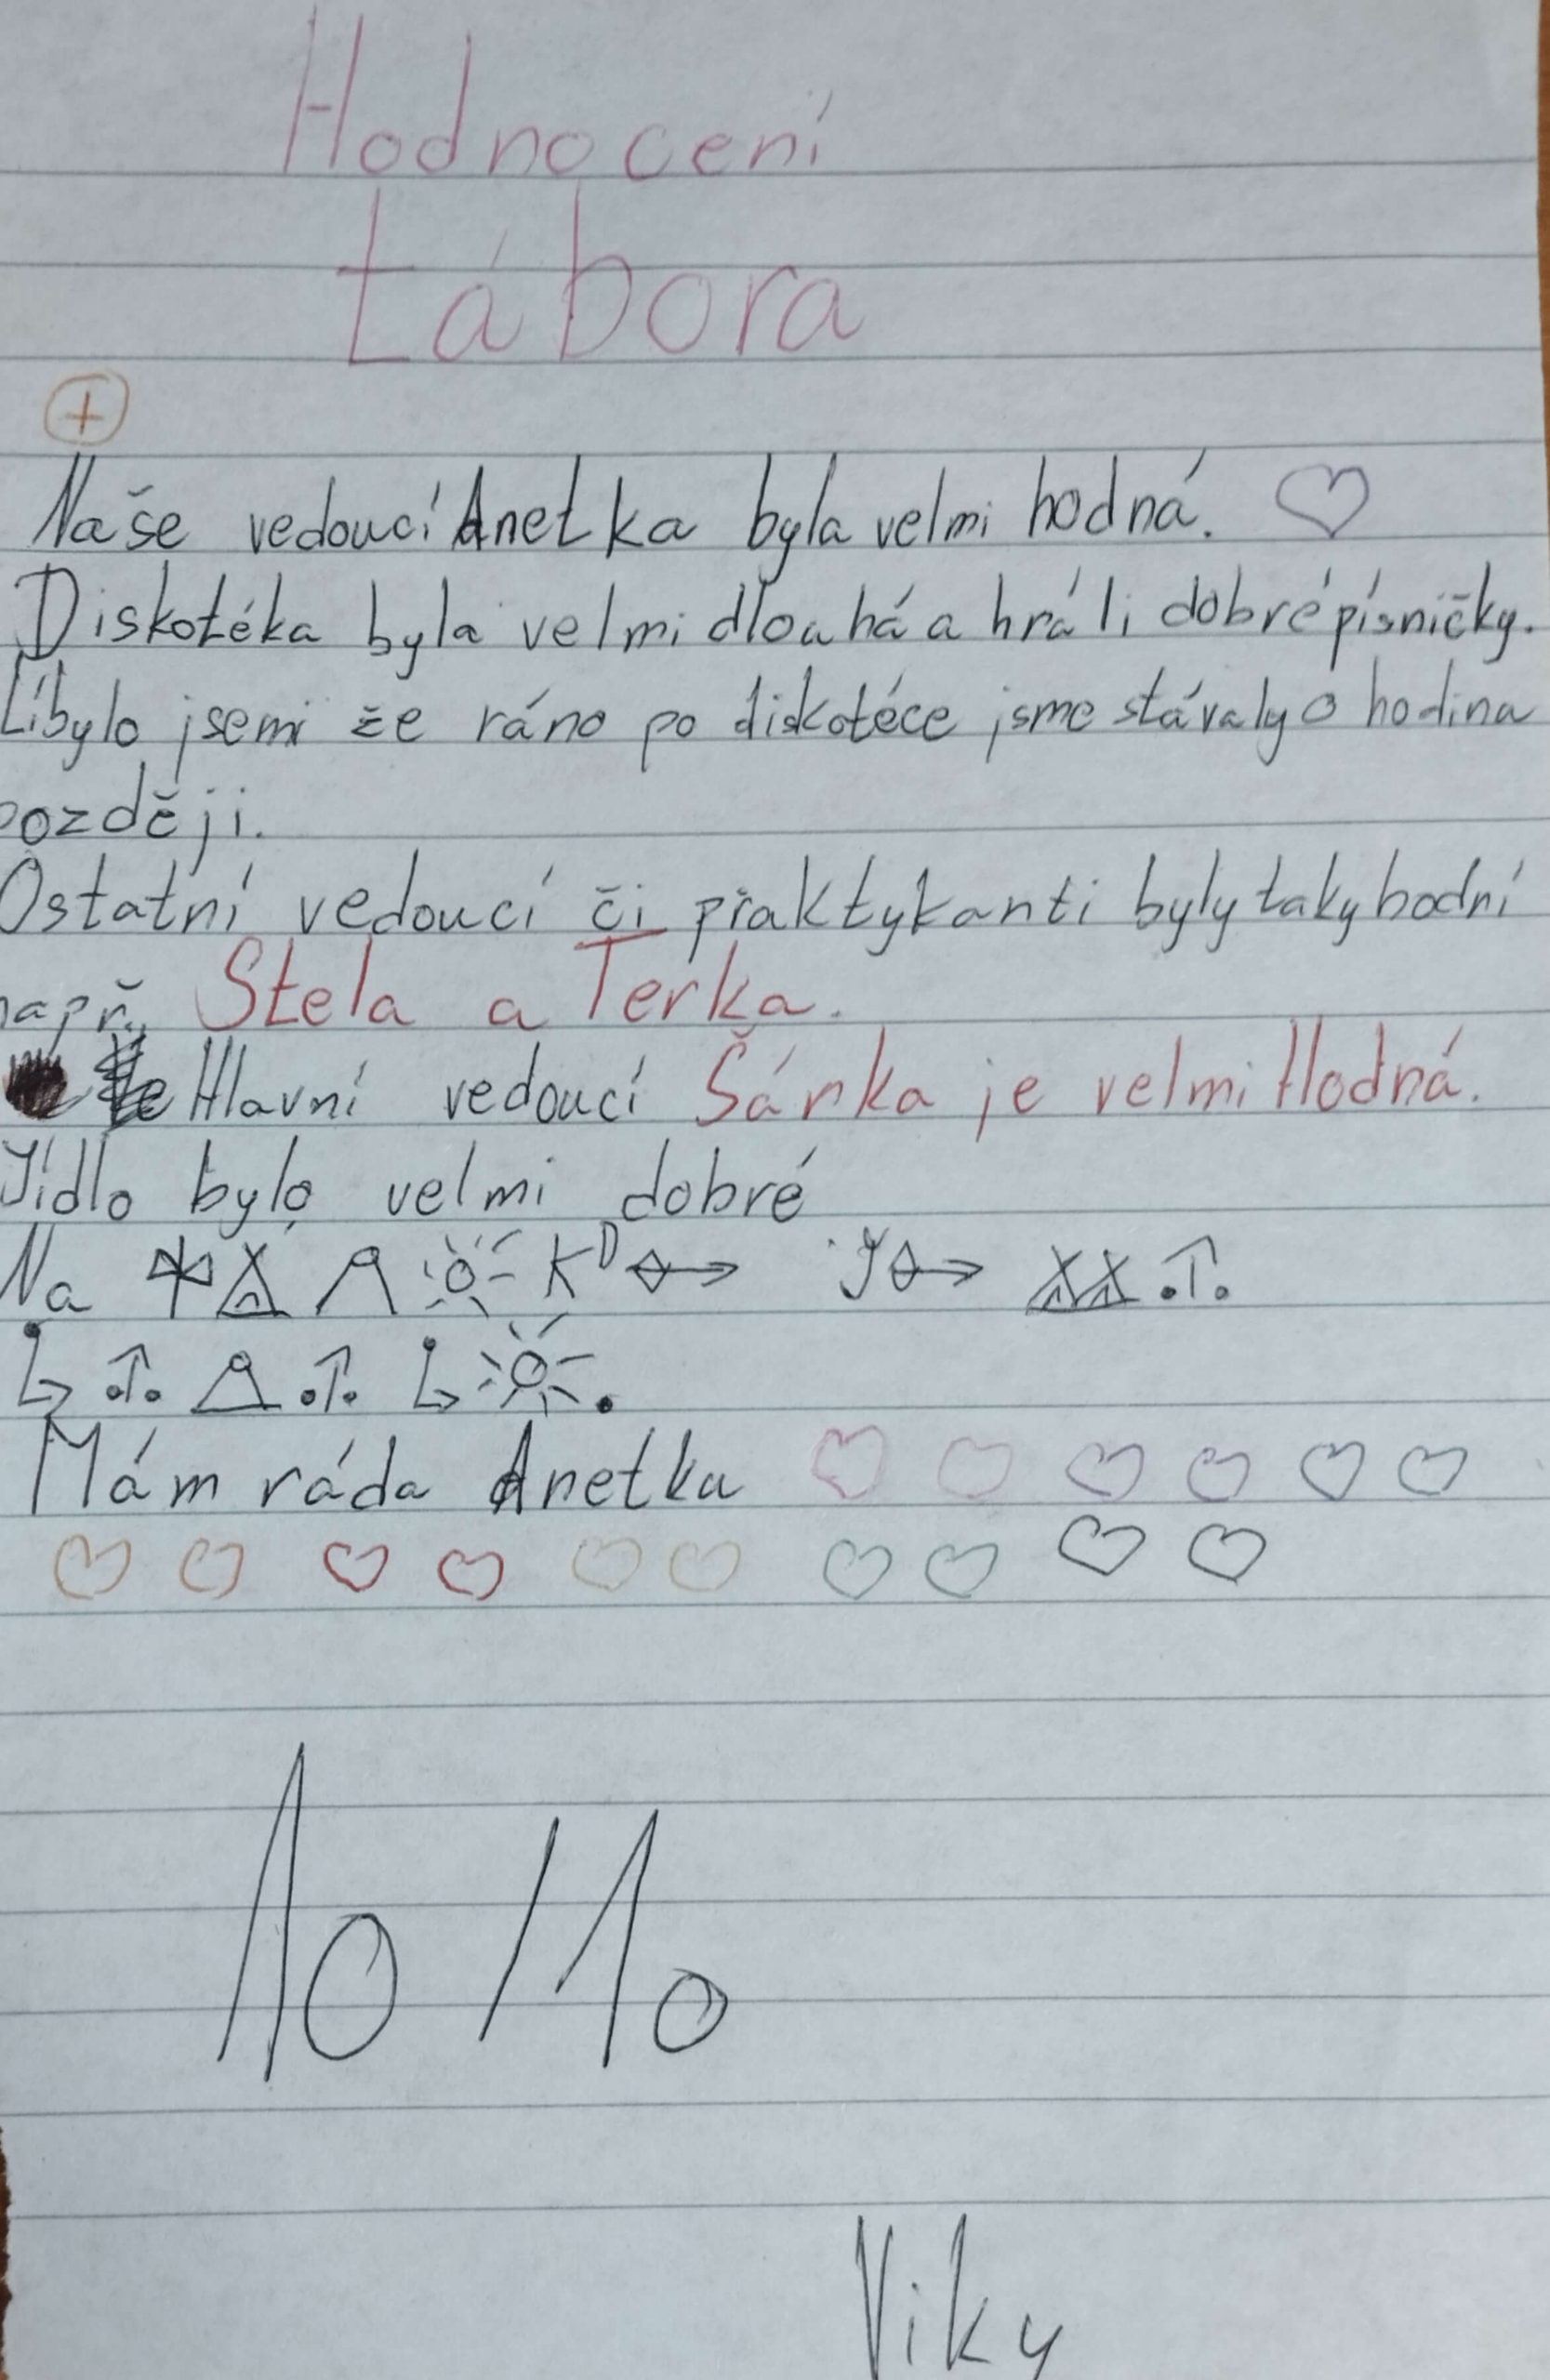 Hodnocení
tábora
+
Naše vedoucí Anetka byla velmi hodná.
Diskotéka byla velmi dlouhá a hráli dobré písničky.
Líbylo jsemi že ráno po diskotéce jsme stávaly o hodina
později.
Ostatní vedoucí či přaktykanti byly taky hodní
např. Stela a Terka.
Hlavní vedoucí Šárka je velmi Hodná.
Jídlo bylo velmi dobré
Na
Mám ráda Anetku
10/10
Viky